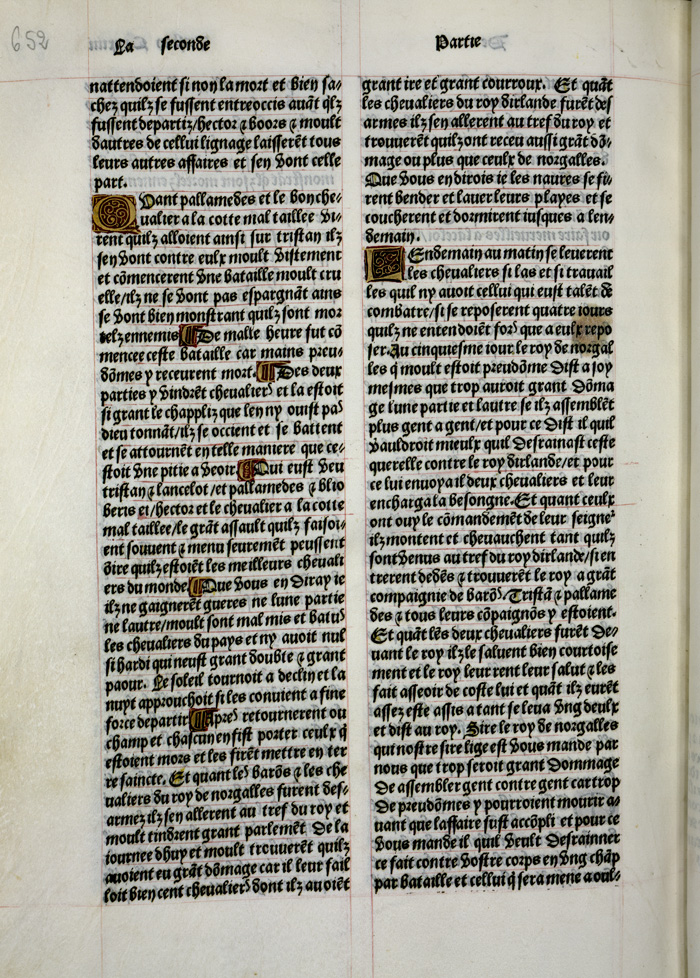 652
La seconde
Partie
nattendoient si non la mort et bien sa/
chez quilz se fussent entreoccis auāt qlz
fussent departiz/hector ⁊ boors ⁊ moult
dautres de cellui lignage laisserēt tous
leurs autres affaires et sen vont celle
part.
Qvant pallamedes et le bon che/
ualier a la cotte mal taillee vi/
rent quilz alloient ainsi sur tristan ilz
sen vont contre eulx moult vistement
et cōmencerent vne bataille moult cru
elle/ilz ne se vont pas espargnāt ains
se vont bien monstrant quilz sont mor
telz ennemis ¶ De malle heure fut cō
mencee ceste bataille car mains preu/
dōmes y receurent mort. ¶ Des deux
parties y vindrēt cheualiers et la estoit
si grant le chappliz que len ny ouist pas
dieu tonnāt/ilz se occient et se battent
et se attournēt en telle maniere que ce/
stoit vne pitie a veoir. ¶ Qui eust veu
tristan ⁊ lancelot/et pallamedes ⁊ blio
beris et/hector et le cheualier a la cotte
mal taillee/le grāt assault quilz faisoi/
ent souuent ⁊ menu seuremēt peussent
dire quilz estoiēt les meilleurs cheuali
ers du monde ¶ Que vous en diray ie
ilz ne gaignerēt gueres ne lune partie
ne lautre/moult sont mal mis et batus
les cheualiers du pays et ny auoit nul
si hardi qui neust grant doubte ⁊ grant
paour. Le soleil tournoit a declin et la
nuyt approuchoit si les conuient a fine
force departir ¶ Apres retournerent ou
champ et chascun en fist porter ceulx q̄
estoient mors et les firēt mettre en ter
re saincte. Et quant les barōs ⁊ les che
ualiers du roy de norgalles furent des/
armez ilz sen allerent au tref du roy et
moult tindrent grant parlemēt De la
iournee dhuy et moult trouuerēt quilz
auoient eu grāt dōmage car il leur fail
loit bien cent cheualiers dont ilz auoiēt
grant ire et grant courroux. Et quāt
les cheualiers du roy dirlande furēt des
armes ilz sen allerent au tref du roy et
trouuerēt quilz ont receu aussi grāt dō/
mage ou plus que ceulx de norgalles.
Que vous en dirois ie les naures se fi/
rent bender et lauer leurs playes et se
coucherent et dormirent iusques a len/
demain.
LEndemain au matin se leuerent
les cheualiers si las et si trauail
les quil ny auoit cellui qui eust talēt de
combatre/si se reposerent quatre iours
quilz ne entendoiēt fors que a eulx repo
ser. Au cinquiesme iour le roy de norgal
les q̄ moult estoit preudōme Dist a soy
mesmes que trop auroit grant Dōma
ge lune partie et lautre se ilz assemblēt
plus gent a gent/et pour ce Dist il quil
vauldroit mieulx quil Desrainast ceste
querelle contre le roy dirlande/et pour
ce lui enuoya il deux cheualiers et leur
encharga la besongne. Et quant ceulx
ont ouy le cōmandemēt de leur seigneˀ
ilz montent et cheuauchent tant quilz
sont venus au tref du roy dirlande/si en
trerent dedēs ⁊ trouuerēt le roy a grāt
compaignie de barōs/Tristā ⁊ pallame
des ⁊ tous leurs cōpaignōs y estoient.
Et quāt les deux cheualiers furēt De/
uant le roy ilz le saluent bien courtoise
ment et le roy leur rent leur salut ⁊ les
fait asseoir de coste lui et quāt ilz eurēt
assez este assis a tant se leua vng deulx
et dist au roy. Sire le roy de norgalles
qui nostre sire lige est vous mande par
nous que trop seroit grant Dommage
De assembler gent contre gent car trop
De preudōmes y pourroient mourir a/
uant que laffaire fust accōpli et pour ce
vous mande il quil veult Desrainner
ce fait contre vostre corps en vng chāp
par bataille et cellui q̄ sera mene a oul/